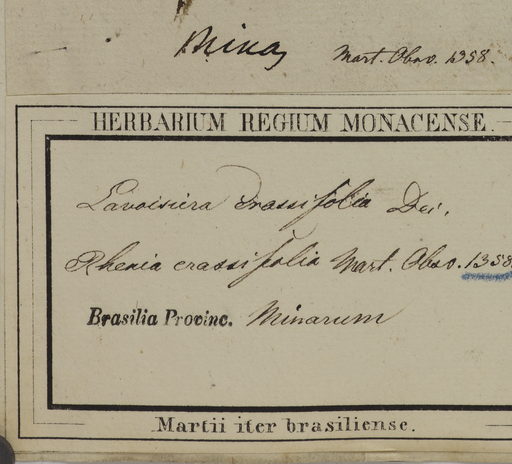 Minas Mart. Obsv. 1358.
HERBARIUM REGIUM MONACENSE.
Lavoisiera crassifolia Dec.
Rhexia crassifolia Mart. Obsv. 1358
Brasilia Provinc. Minarum
Martii iter brasiliense.